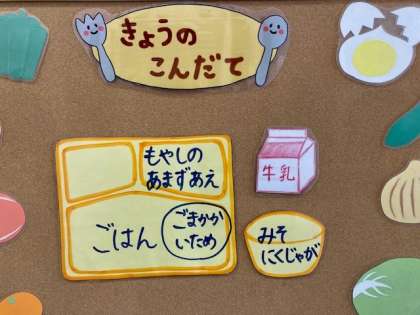 きょうの
こんだて
もやしの
あまずあえ
牛乳
ごはん
ごまかか
いため
みそ
にくじゃが